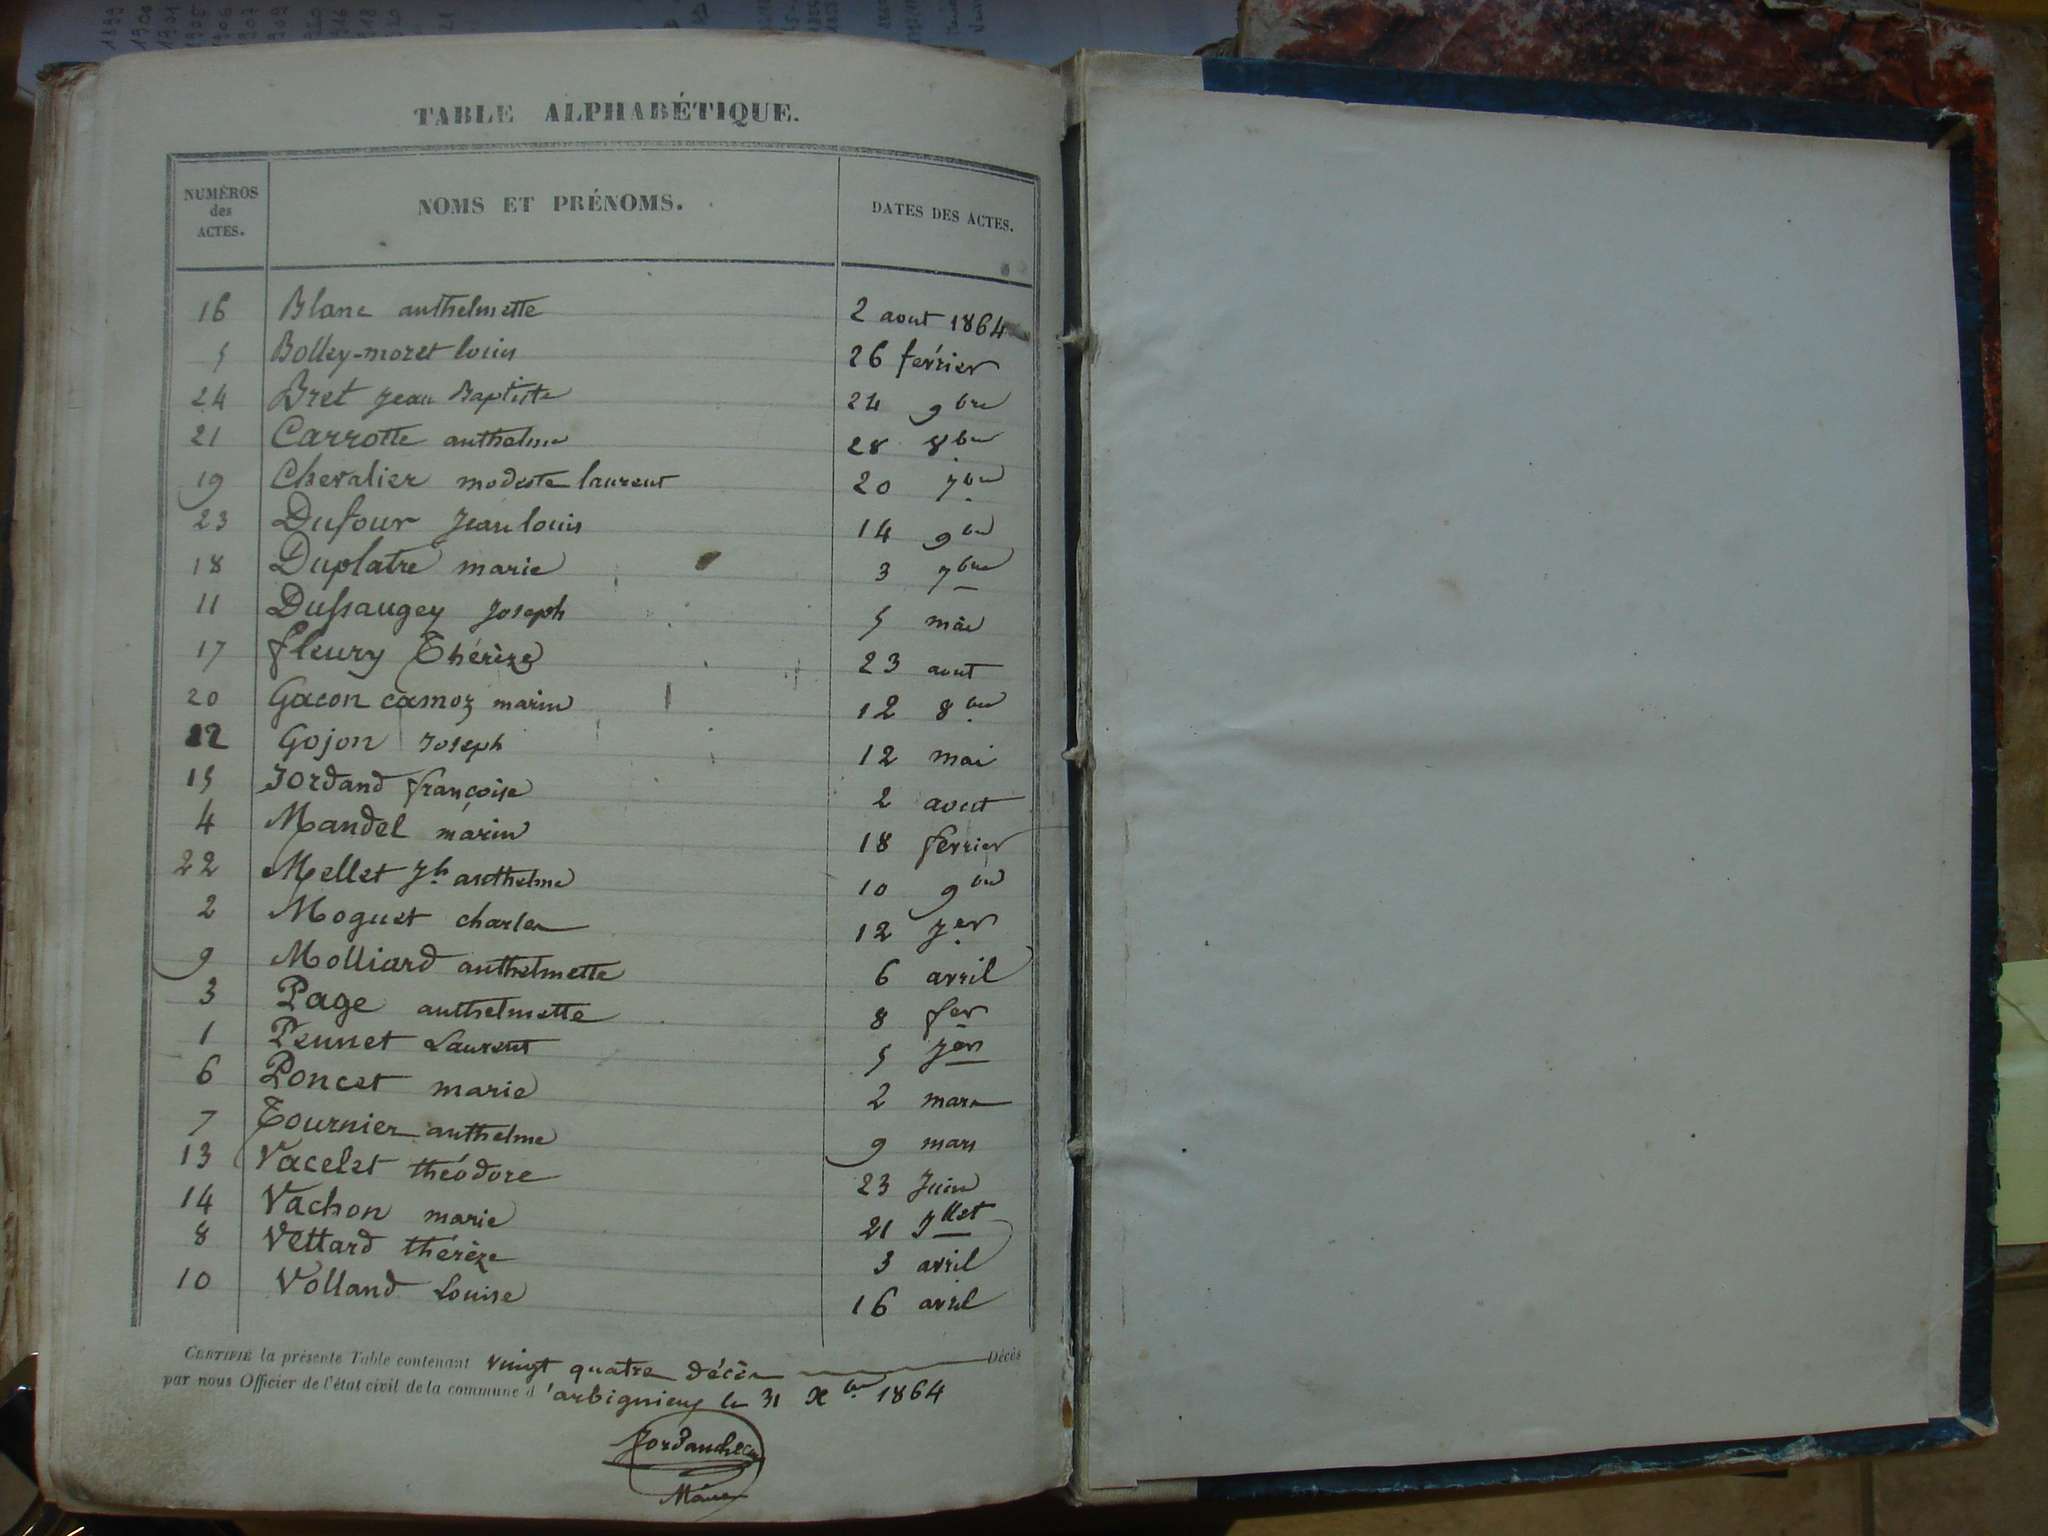 TABLE ALPHABÉTIQUE.
NUMÉROS des ACTES. NOMS ET PRÉNOMS. DATES DES ACTES.
16 Blanc anthelmette 2 aout 1864
5 Bolley-moret louis 26 février
24 Bret Jean Baptiste 24 9bre
21 Carrotte anthelme 28 8bre
19 Chevalier modeste laurent 20 7bre
23 Dufour Jean louis 14 9bre
18 Duplatre marie 3 7bre
11 Dussaugey Joseph 5 mai
17 fleury Thérèze 23 aout
20 Gacon camoz marin 12 8bre
12 Gojon Joseph 12 mai
15 Jordand françoise 2 aout
4 Mandel marin 18 février
22 Mellet Jh anthelme 10 9bre
2 Moguet charles 12 Jer
9 Molliard anthelmette 6 avril
3 Page anthelmette 8 fer
1 Peunet Laurent 5 Jer
6 Poncet marie 2 mars
7 Tournier anthelme 9 mars
13 Vacelet théodore 23 Juin
14 Vachon marie 21 Jllet
8 Vettard thérèze 3 avril
10 Volland Louise 16 avril
CERTIFIÉ la présente Table contenant vingt quatre décès Décès
par nous Officier de l'état civil de la commune d'arbignieu le 31 Xbre 1864
Maire